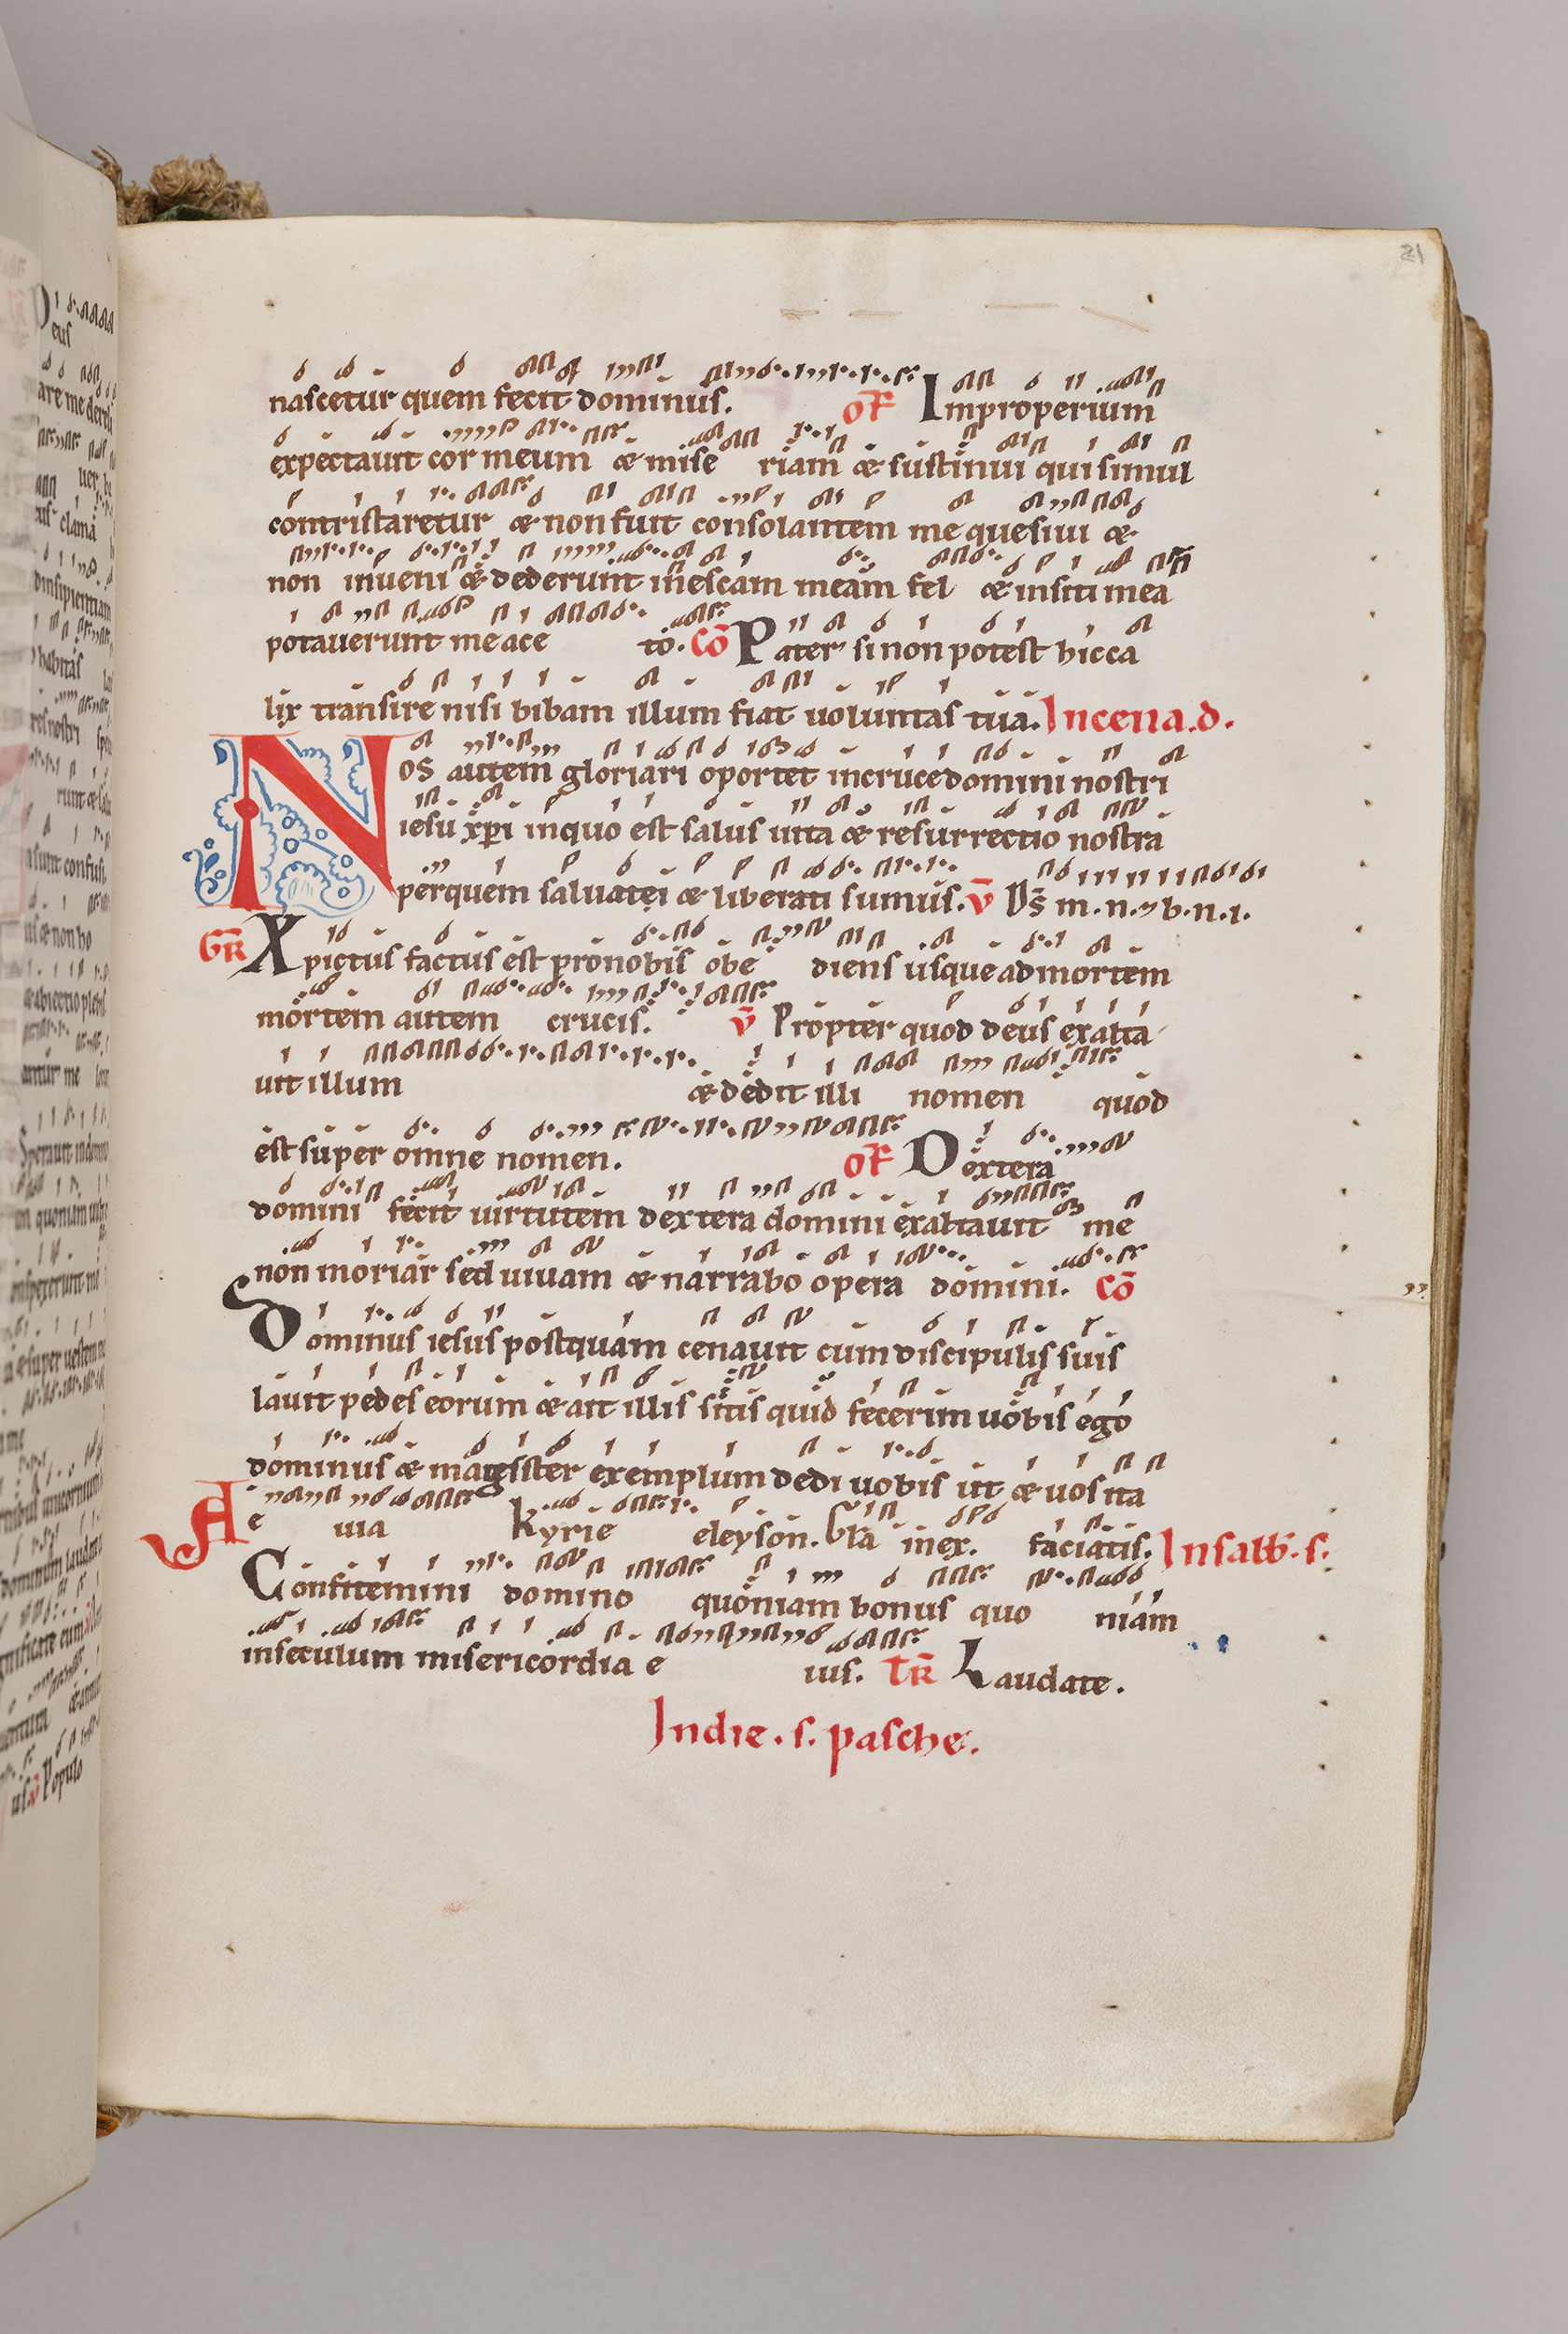 21
nascetur quem fecit dominus. OF Improperium
expectauit cor meum & mise riam & sustinui qui simul
contristaretur & non fuit consolantem me quesiui &
non inueni & dederunt in escam meam fel & in siti mea
potauerunt me ace to. CO Pater si non potest hic ca
lix transire nisi bibam illum fiat uoluntas tua. In cena .d.
Nos autem gloriari oportet in cruce domini nostri
iesu xpi in quo est salus uita & resurrectio nostra
per quem saluati & liberati sumus. V Ds m.n. & b.n.i.
GR Xpictus factus est pro nobis obe diens usque ad mortem
mortem autem crucis. V Propter quod deus exalta
uit illum & dedit illi nomen quod
est super omne nomen. OF Dextera
domini fecit uirtutem dextera domini exaltauit me
non moriar sed uiuam & narrabo opera domini. CO
Dominus iesus postquam cenauit cum discipulis suis
lauit pedes eorum & ait illis scitis quid fecerim uobis ego
dominus & magister exemplum dedi uobis ut & uos ita
A e uia Kyrie eleyson. Gla in ex. faciatis. In sabb. s.
Confitemini domino quoniam bonus quo niam
in seculum misericordia e ius. TR Laudate.
In die .s. pasche.